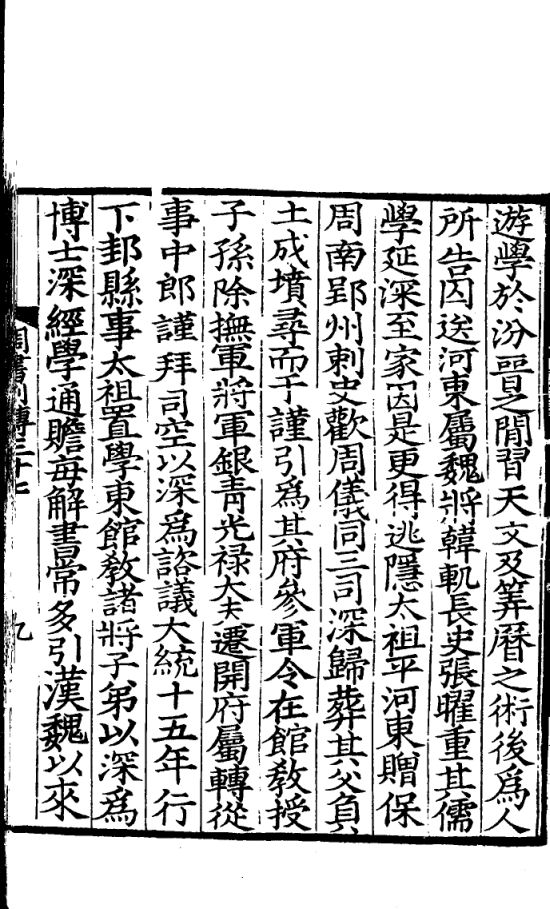 遊學於汾晉之閒習天文及筭曆之術後爲人
所告囚送河東屬魏將韓軌長史張曜重其儒
學延深至家因是更得逃隱太祖平河東贈保
周南郢州刺史歡周儀同三司深歸葬其父負
土成墳尋而于謹引爲其府參軍令在館敎授
子孫除撫軍將軍銀靑光禄大夫遷開府屬轉從
事中郎謹拜司空以深爲諮議大統十五年行
下邽縣事太祖置學東館敎諸將子弟以深爲
博士深經學通贍每解書常多引漢魏以來
周書列傳三十七
九